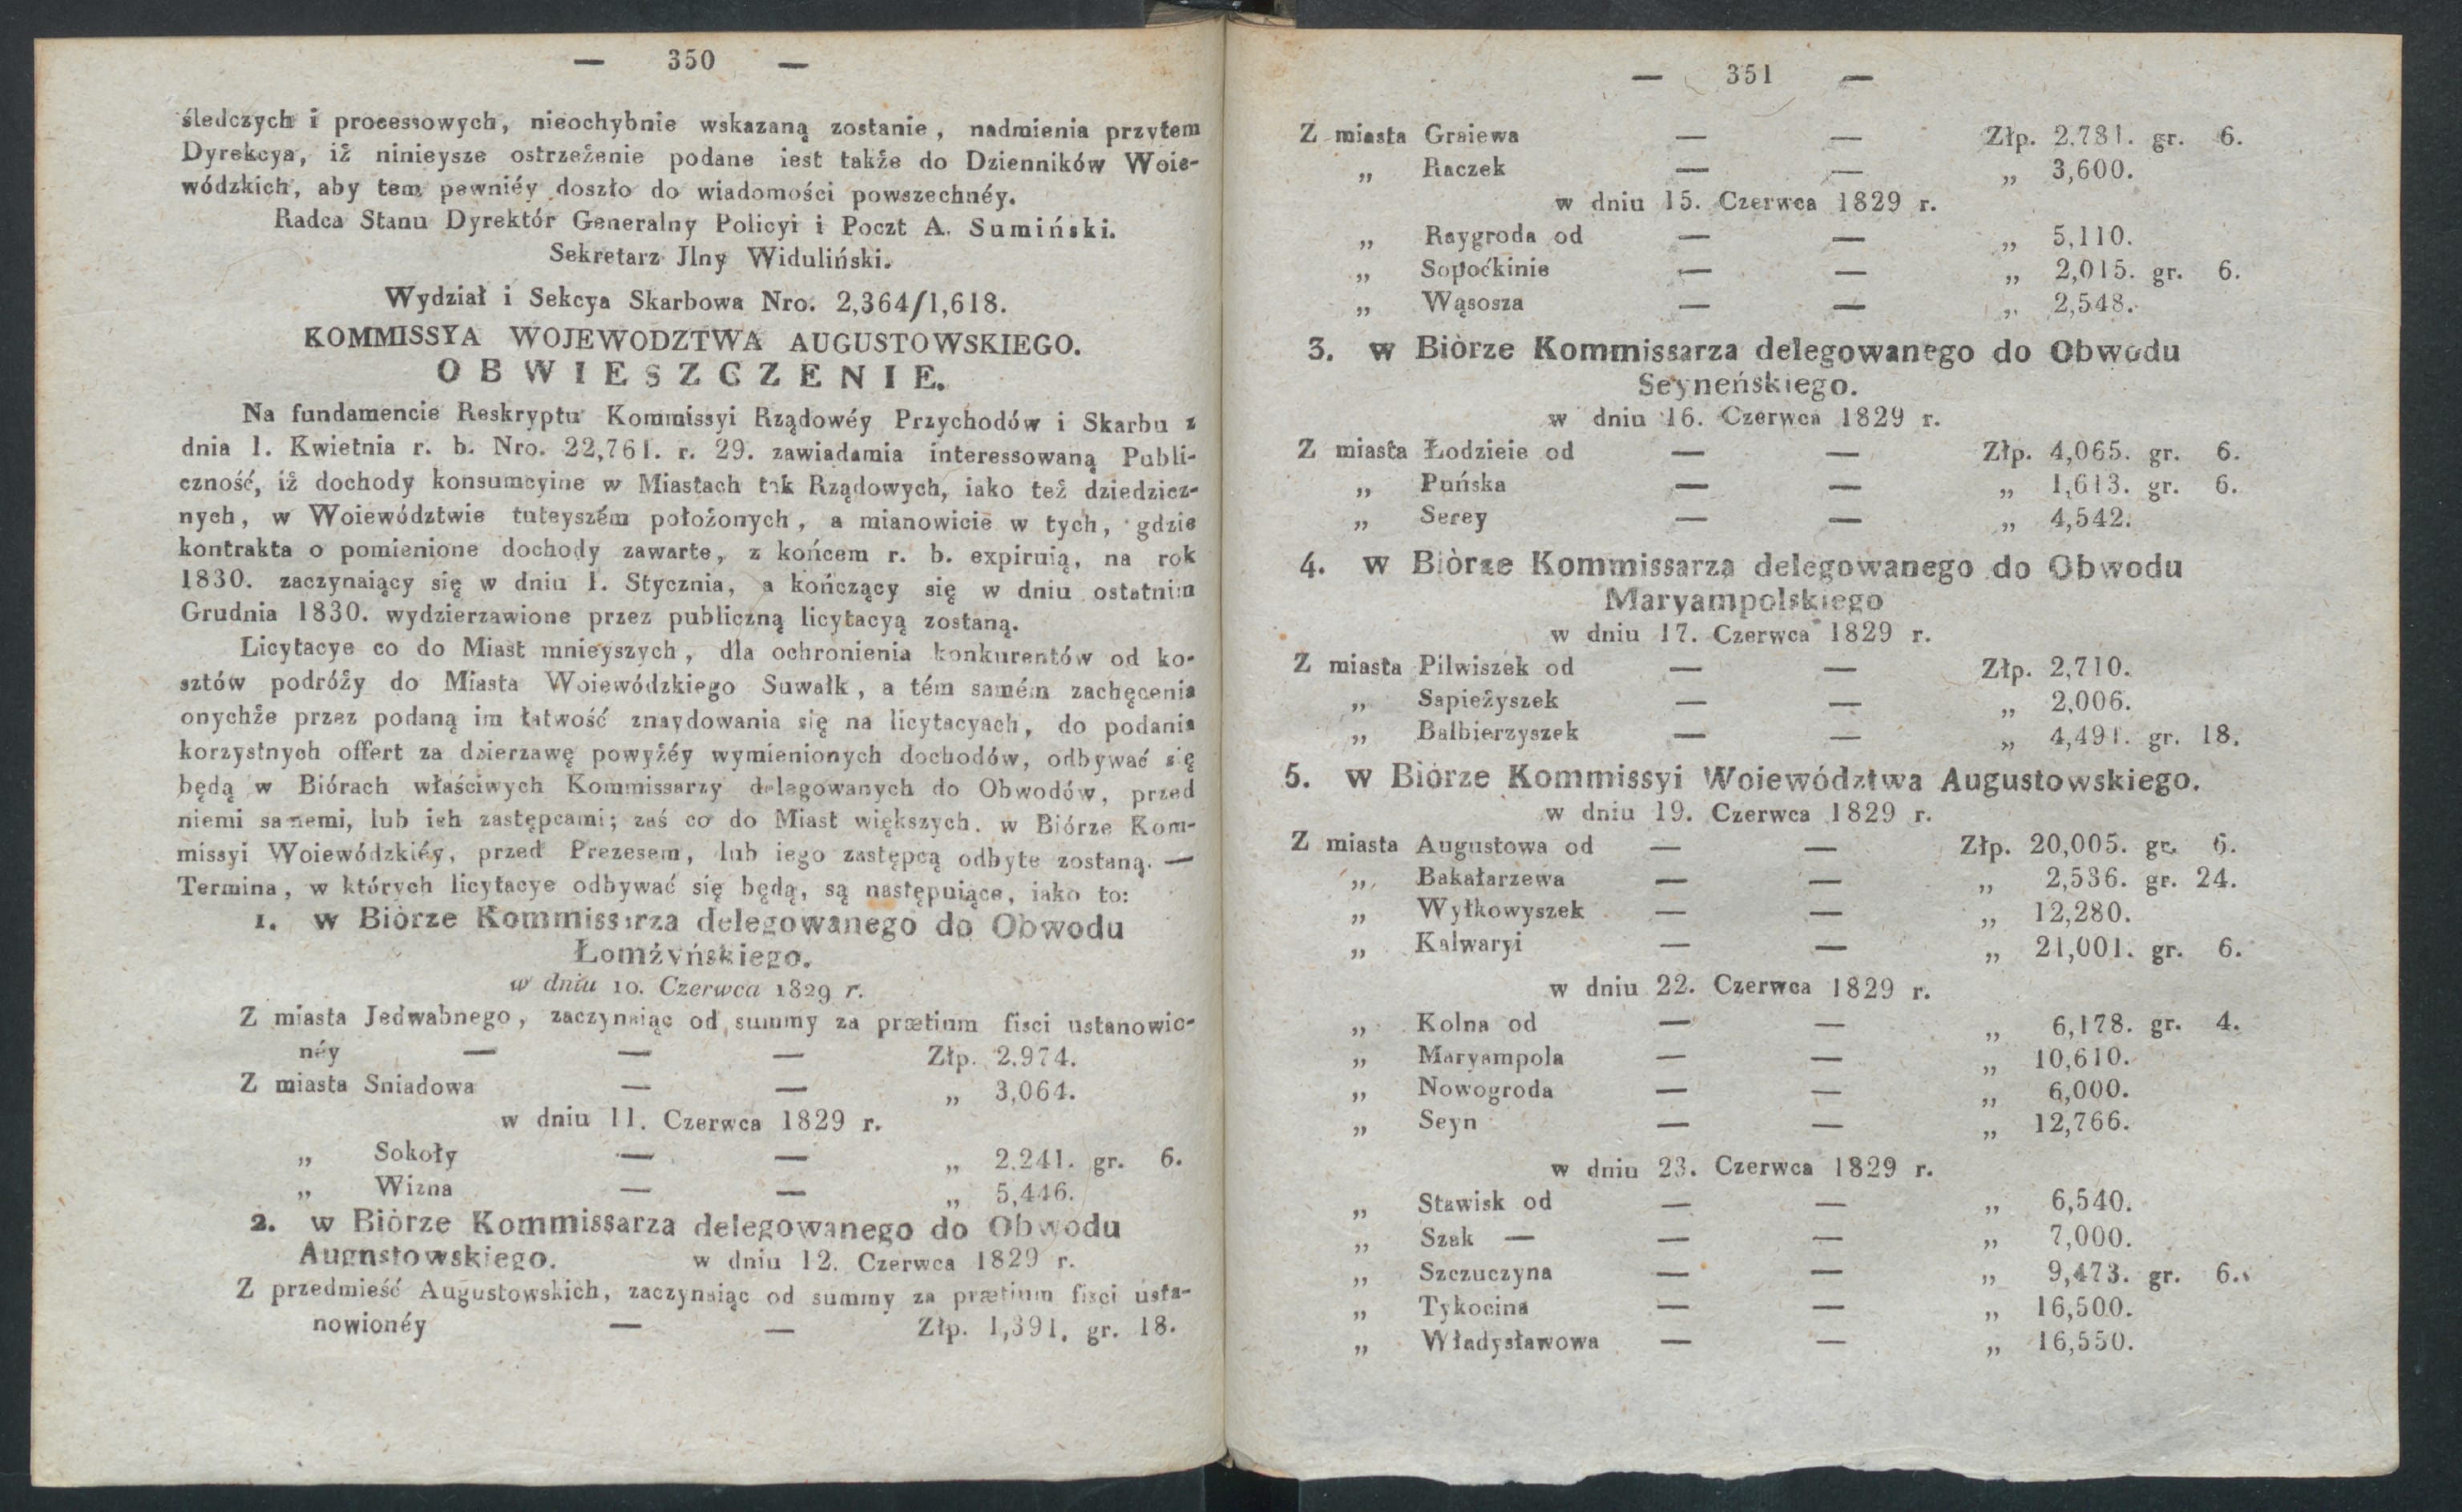 — 350 —
śledczych i processowych, nieochybnie wskazaną zostanie, nadmienia przytem
Dyrekcya, iż ninieysze ostrzeżenie podane iest także do Dzienników Woie-
wódzkich, aby tem pewniéy doszło do wiadomości powszechnéy.
Radca Stanu Dyrektór Generalny Policyi i Poczt A. Sumiński.
Sekretarz Jlny Widuliński.
Wydział i Sekcya Skarbowa Nro. 2,364/1,618.
KOMMISSYA WOJEWODZTWA AUGUSTOWSKIEGO.
OBWIESZCZENIE.
Na fundamencie Reskryptu Kommissyi Rządowéy Przychodów i Skarbu z
dnia 1. Kwietnia r. b. Nro. 22,761. r. 29. zawiadamia interessowaną Publi-
czność, iż dochody konsumcyine w Miastach tak Rządowych, iako też dziedzicz-
nych, w Woiewództwie tuteyszém położonych, a mianowicie w tych, gdzie
kontrakta o pomienione dochody zawarte, z końcem r. b. expiruią, na rok
1830. zaczynaiący się w dniu 1. Stycznia, a kończący się w dniu ostatnim
Grudnia 1830. wydzierzawione przez publiczną licytacyą zostaną.
Licytacye co do Miast mnieyszych, dla ochronienia konkurentów od ko-
sztów podróży do Miasta Woiewódzkiego Suwałk, a tém samém zachęcenia
onychże przez podaną im łatwość znaydowania się na licytacyach, do podania
korzystnych offert za dzierzawę powyżéy wymienionych dochodów, odbywać się
będą w Biórach właściwych Kommissarzy delegowanych do Obwodów, przed
niemi samemi, lub ich zastępcami; zaś co do Miast większych. w Biórze Kom-
missyi Woiewódzkiéy, przed Prezesem, lub iego zastępcą odbyte zostaną. —
Termina, w których licytacye odbywać się będą, są następuiące, iako to:
1. w Biòrze Kommissarza delegowanego do Obwodu
Łomżyńskiego.
w dniu 10. Czerwca 1829 r.
Z miasta Jedwabnego, zaczynaiąc od summy za prætium fisci ustanowio-
néy — — — Złp. 2.974.
Z miasta Sniadowa — — „ 3,064.
w dniu 11. Czerwca 1829 r.
„ Sokoły — — „ 2.241. gr. 6.
„ Wizna — — „ 5,446.
2. w Biòrze Kommissarza delegowanego do Obwodu
Augnstowskiego. w dniu 12. Czerwca 1829 r.
Z przedmieść Augustowskich, zaczynaiąc od summy za prætium fisci usta-
nowionéy — — Złp. 1,391. gr. 18.
— 351 —
Z miasta Graiewa — — Złp. 2.781. gr. 6.
„ Raczek — — „ 3,600.
w dniu 15. Czerwca 1829 r.
„ Raygroda od — — „ 5,110.
„ Sopoćkinie — — „ 2,015. gr. 6.
„ Wąsosza — — „ 2,548.
3. w Biòrze Kommissarza delegowanego do Obwodu
Seyneńskiego.
w dniu 16. Czerwca 1829 r.
Z miasta Łodzieie od — — Złp. 4,065. gr. 6.
„ Puńska — — „ 1,613. gr. 6.
„ Serey — — „ 4,542.
4. w Biòrze Kommissarza delegowanego do Obwodu
Maryampolskiego
w dniu 17. Czerwca 1829 r.
Z miasta Pilwiszek od — — Złp. 2,710.
„ Sapieżyszek — — „ 2,006.
„ Balbierzyszek — — „ 4,491. gr. 18.
5. w Biòrze Kommissyi Woiewództwa Augustowskiego.
w dniu 19. Czerwca 1829 r.
Z miasta Augustowa od — — Złp. 20,005. gr. 6.
„ Bakałarzewa — — „ 2,536. gr. 24.
„ Wyłkowyszek — — „ 12,280.
„ Kalwaryi — — „ 21,001. gr. 6.
w dniu 22. Czerwca 1829 r.
„ Kolna od — — „ 6,178. gr. 4.
„ Maryampola — — „ 10,610.
„ Nowogroda — — „ 6,000.
„ Seyn — — „ 12,766.
w dniu 23. Czerwca 1829 r.
„ Stawisk od — — „ 6,540.
„ Szak — — — „ 7,000.
„ Szczuczyna — — „ 9,473. gr. 6.
„ Tykocina — — „ 16,500.
„ Władysławowa — — „ 16,550.